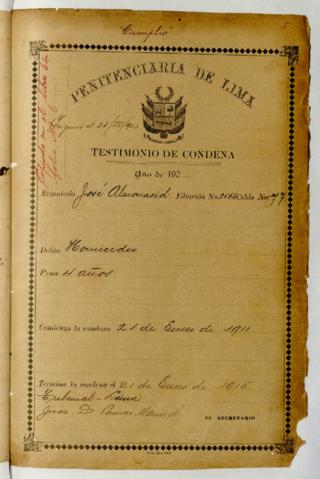 Cumplió
5
PENITENCIARIA DE LIMA
TESTIMONIO DE CONDENA
Año de 190
Rematado José Almonacid Filiación No. 2866 Celda No. 77
Delito Homicidio
Pena 4 años
Comienza la condena 21 de Enero de 1911
Termina la condena el 21 de Enero de 1915
Tribunal - Lima
Juez Dr.
EL SECRETARIO